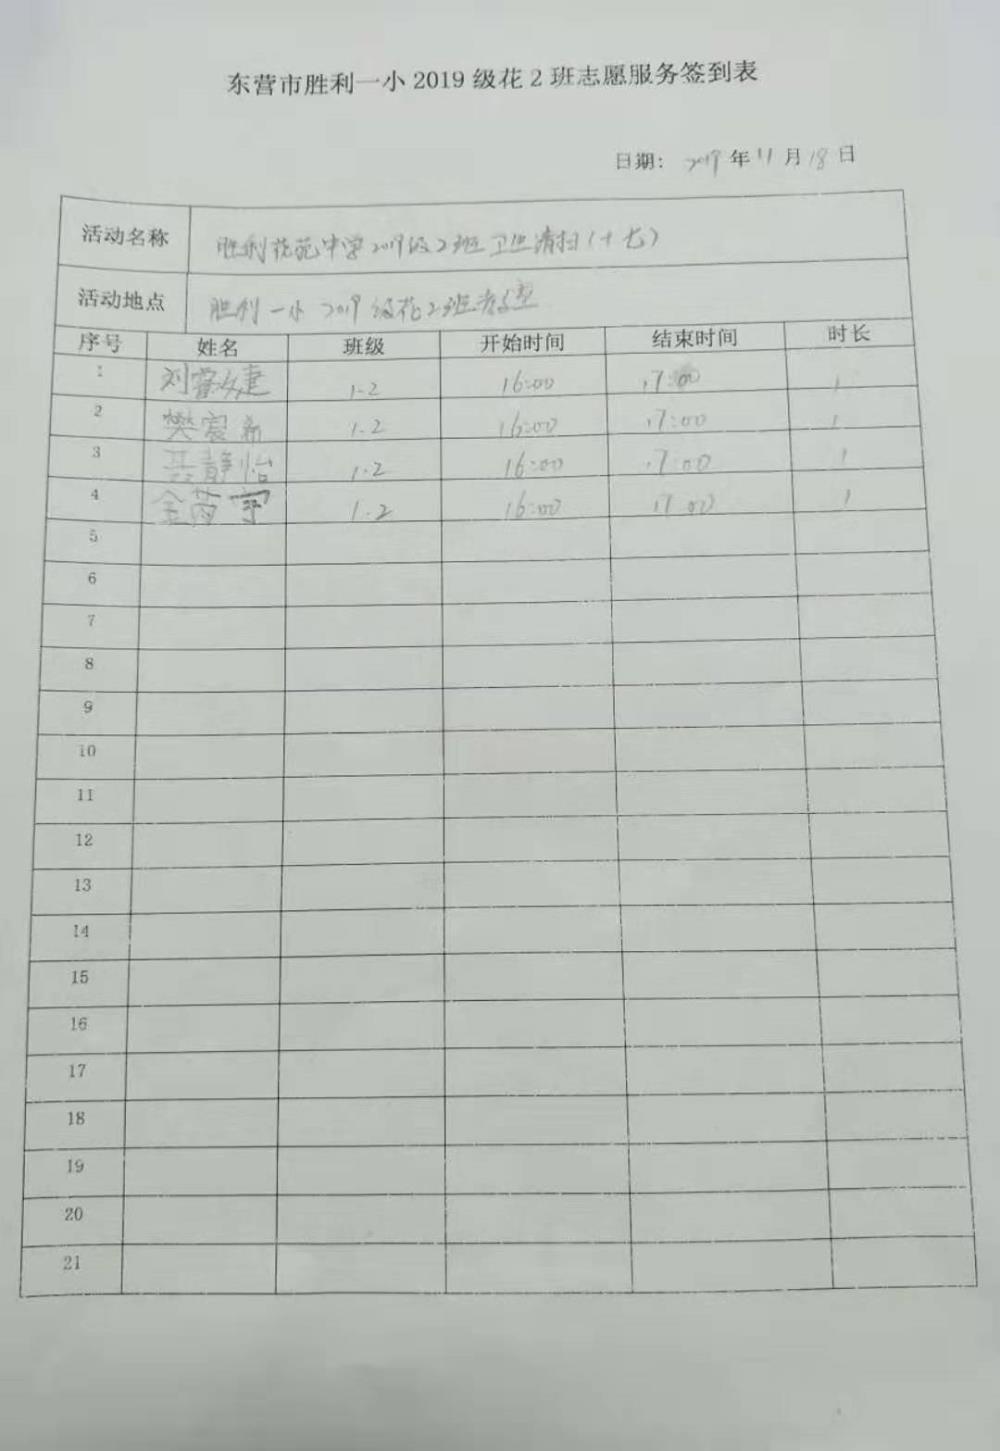 东营市胜利一小2019级花2班志愿服务签到表
日期: 2019年11月18日
活动名称 胜利花苑中学2019级2班卫生清扫(十七)
活动地点 胜利一小2019级花2班教室
序号 姓名 班级 开始时间 结束时间 时长
1 刘睿 1.2 16:00 17:00 1
2 樊宸希 1.2 16:00 17:00 1
3 聂静怡 1.2 16:00 17:00 1
4 金 宇 1.2 16:00 17:00 1
5
6
7
8
9
10
11
12
13
14
15
16
17
18
19
20
21